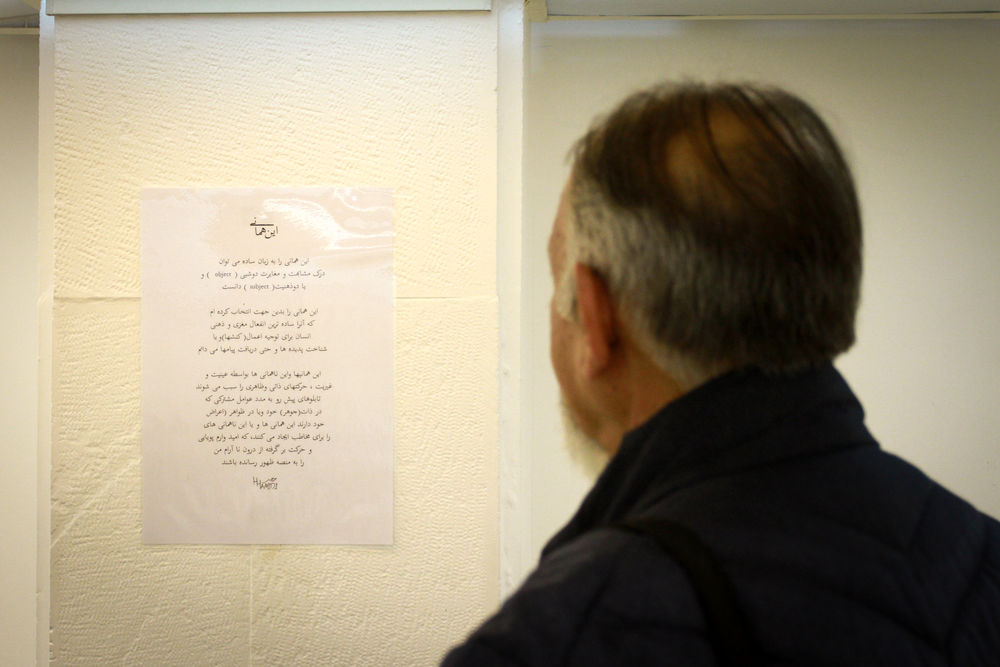 این‌همانی
این همانی را به زبان ساده می توان
درک مشابهت و مغایرت دوشیی ( object ) و
یا دوذهنیت( subject ) دانست
این همانی را بدین جهت انتخاب کرده ام
که آنرا ساده ترین انفعال مغزی و ذهنی
انسان برای توجیه اعمال( کنشها)و یا
شناخت پدیده ها و حتی دریافت پیامها می دانم
این همانیها واین ناهمانی ها بواسطه عینیت و
غیریت ، حرکتهای ذاتی وظاهری را سبب می شوند
تابلوهای پیش رو به مدد عوامل مشترکی که
در ذات(جوهر) خود ویا در ظواهر (اعراض
خود دارند این همانی ها و یا این ناهمانی های
را برای مخاطب ایجاد می کنند، که امید وارم پویایی
و حرکت بر گرفته از درون نا آرام من
را به منصه ظهور رسانده باشند